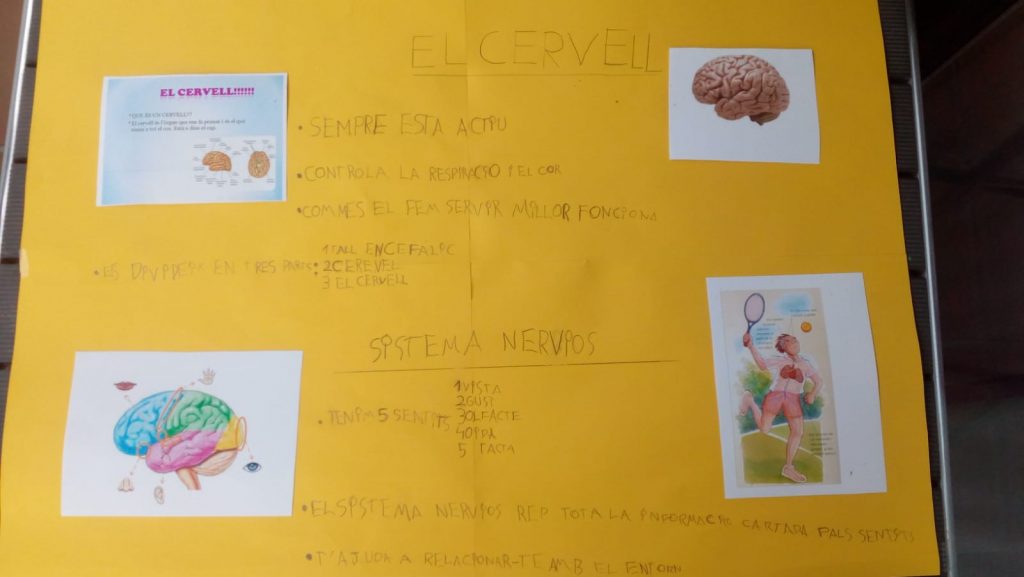 EL CERVELL
EL CERVELL!!!!!!
*QUÈ ÉS UN CERVELL??
* El cervell és l'òrgan que ens fa pensar i és el que
mana a tot el cos. Està a dins el cap.
• SEMPRE ESTA ACTIU
• CONTROLA LA RESPIRACIO I EL COR
• COM MES EL FEM SERVIR MILLOR FONCIONA
• ES DIVIDEIX EN TRES PARTS:
1 TALL ENCEFALIC
2 CEREVEL
3 EL CERVELL
SISTEMA NERVIOS
• TENIM 5 SENTITS
1 VISTA
2 GUST
3 OLFACTE
4 OIDA
5 TACTA
• EL SISTEMA NERVIOS REP TOTA LA INFORMACIO CAPTADA PALS SENTITS
• T'AJUDA A RELACIONAR-TE AMB EL ENTORN